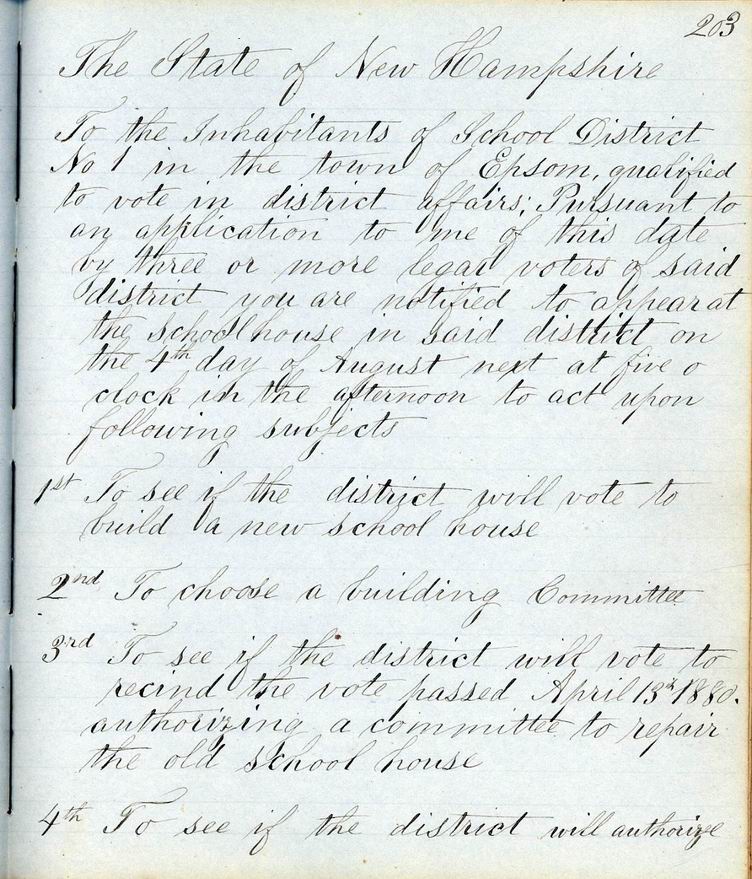 203
The State of New Hampshire
To the Inhabitants of School District
No 1 in the town of Epsom, qualified
to vote in district affairs; Pursuant to
an application to me of this date
by three or more legal voters of said
district you are notified to appear at
the Schoolhouse in said district on
the 4th day of August next at five o
clock in the afternoon to act upon
following subjects
1st To see if the district will vote to
build a new school house
2nd To choose a building Committee
3rd To see if the district will vote to
recind the vote passed April 13th 1880.
authorizing a committee to repair
the old school house
4th To see if the district will authorize